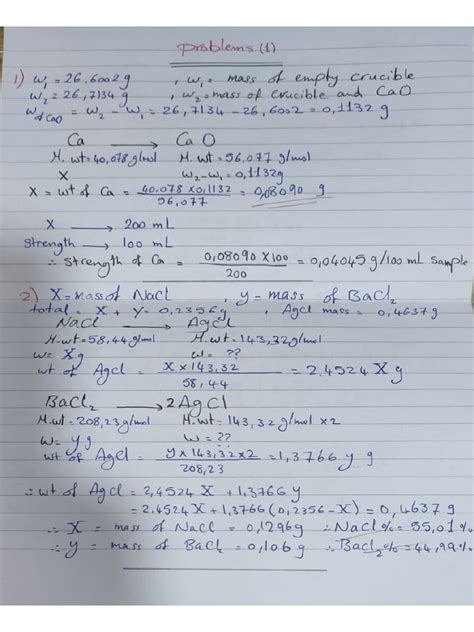 Problems (1)
1) W₁ = 26,6002 g , W₁ = mass of empty crucible
W₂ = 26,7134 g , W₂ = mass of crucible and CaO
W of CaO = W₂ - W₁ = 26,7134 - 26,6002 = 0,1132 g
Ca → CaO
M.wt = 40,078 g/mol M.wt = 56,077 g/mol
X W₂-W₁ = 0,1132g
X = wt of Ca = 40,078 x 0,1132 / 56,077 = 0,08090 g
X → 200 mL
Strength → 100 mL
∴ Strength of Ca = 0,08090 X 100 / 200 = 0,04045 g/100 mL Sample
2) X = mass of NaCl , y = mass of BaCl₂
total = X + Y = 0,2356g , AgCl mass = 0,4637g
NaCl → AgCl
M.wt = 58,44 g/mol M.wt = 143,32 g/mol
w = X g w = ??
wt of AgCl = X x 143,32 / 58,44 = 2,4524 X g
BaCl₂ → 2AgCl
M.wt = 208,23 g/mol M.wt = 143,32 g/mol x 2
W = y g W = ??
wt of AgCl = y x 143,32 x 2 / 208,23 = 1,3766 y g
∴ wt of AgCl = 2,4524 X + 1,3766 y
= 2,4524 X + 1,3766 (0,2356 - X) = 0,4637 g
∴ X = mass of NaCl = 0,1296g ∴ NaCl % = 55,01 %
∴ y = mass of BaCl₂ = 0,106 g ∴ BaCl₂ % = 44,99 %